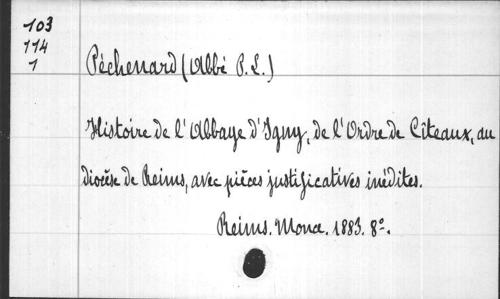 103
114
1
Péchenard (Abbé P. L.)
Histoire de l'Abbaye d'Igny, de l'Ordre de Cîteaux, au
diocèse de Reims, avec pièces justificatives inédites.
Reims. Monce. 1883. 8º.